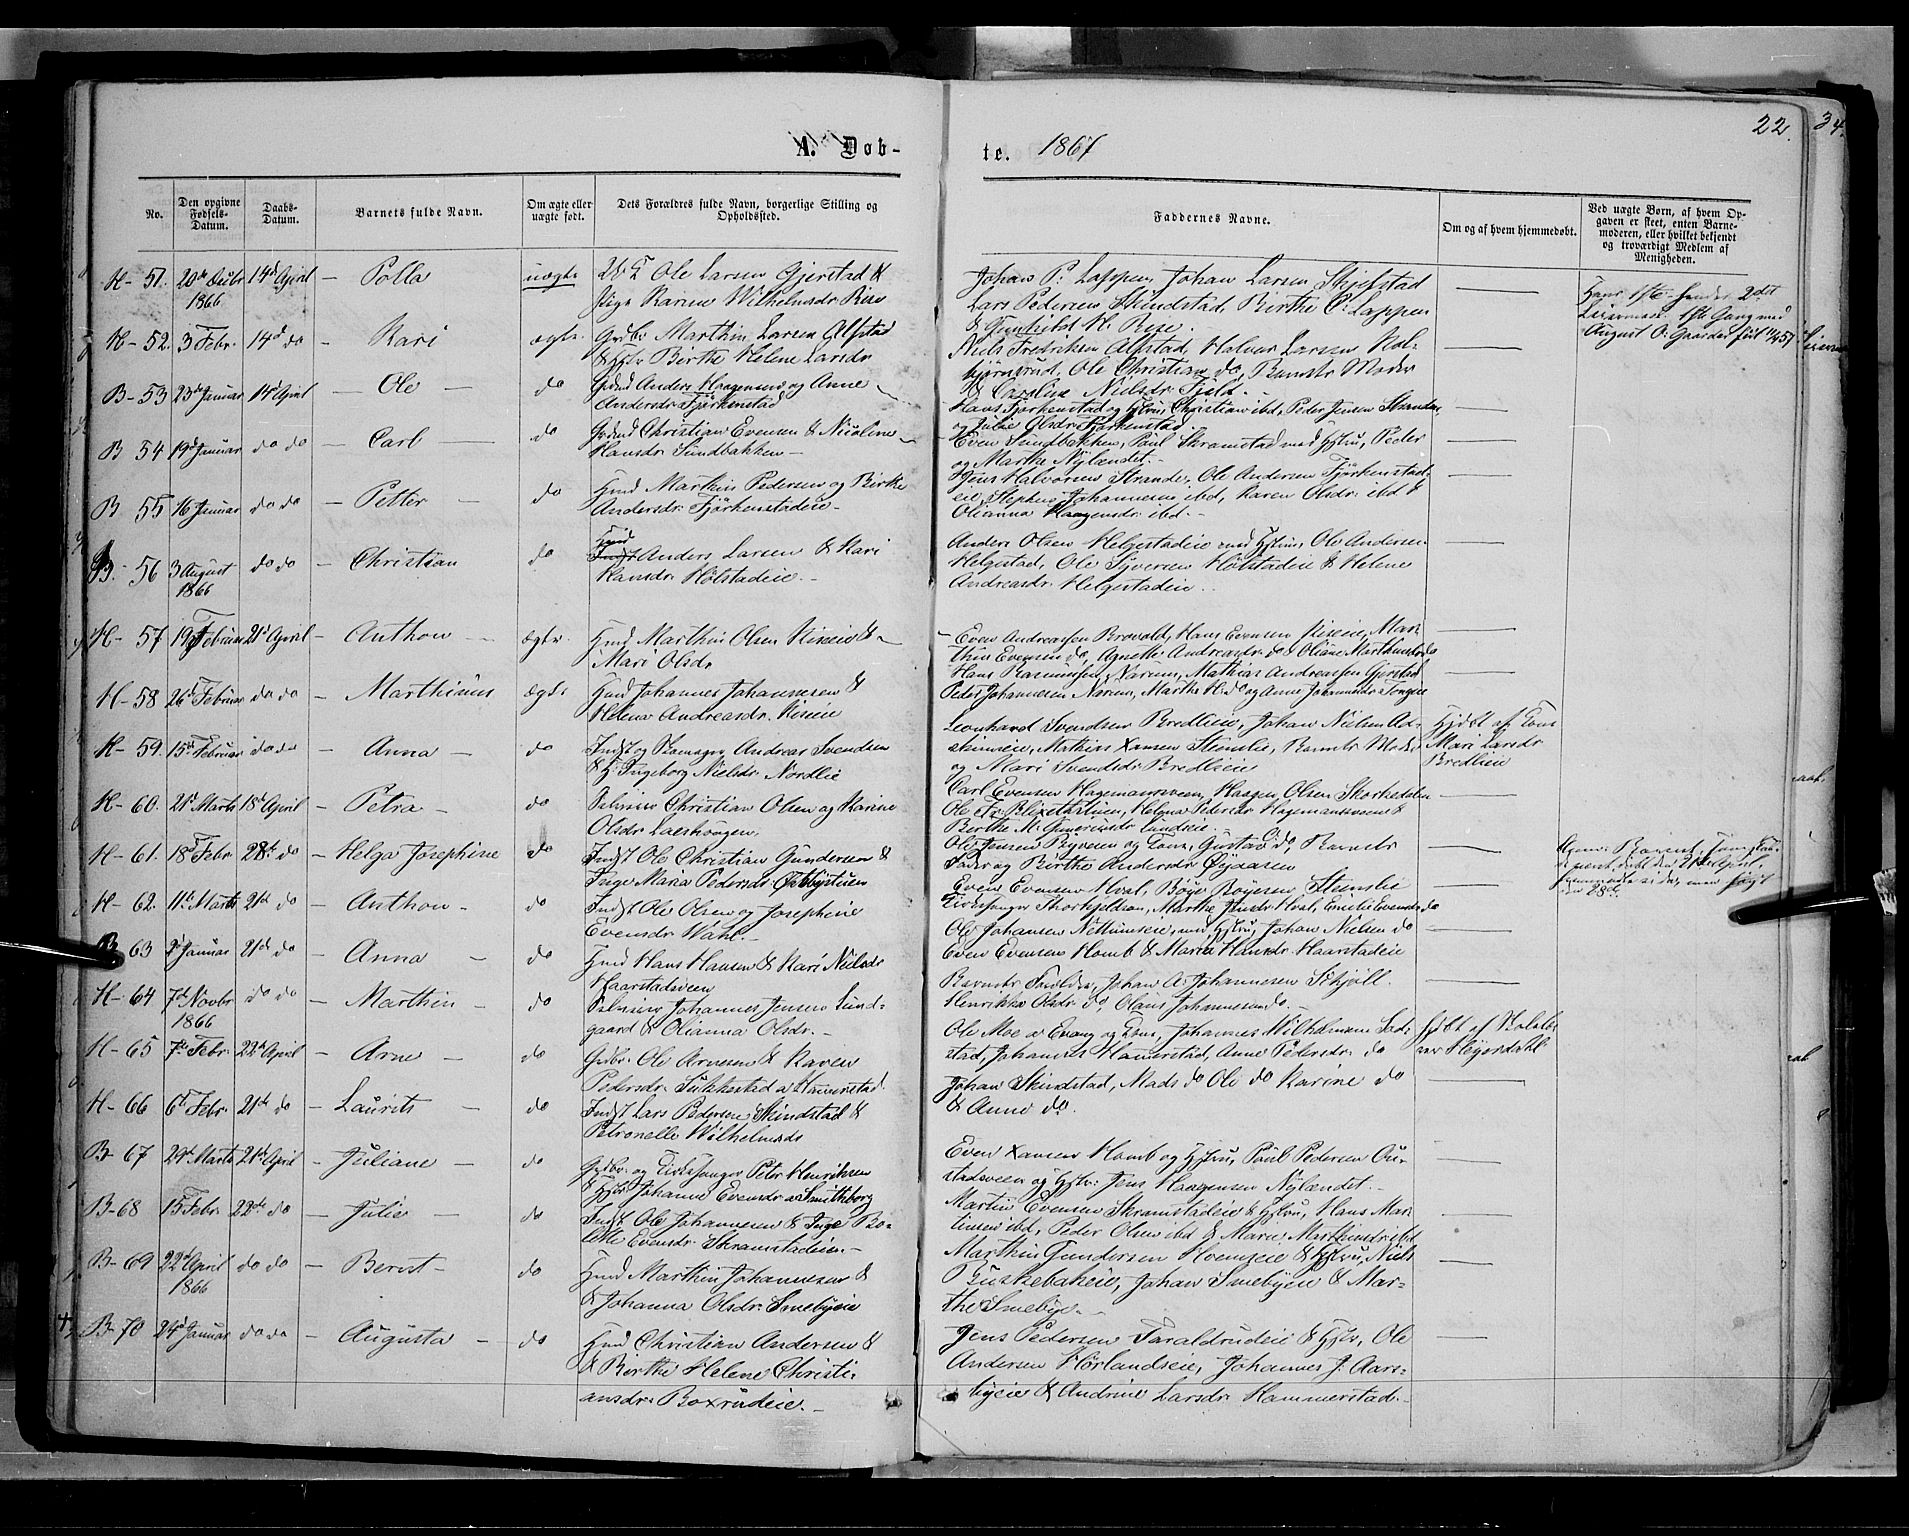 A. Døb-
te. 1867
22.
34.
No.
Den opgivne Fødsels-Datum.
Daabs-Datum.
Barnets fulde Navn.
Om ægte eller uægte født.
Dets Forældres fulde Navn, borgerlige Stilling og Opholdssted.
Faddernes Navne.
Om og af hvem hjemmedøbt.
Ved uægte Børn, af hvem Op-
gaven er skeet, enten Barne-
moderen, eller hvilket bekjendt
og troværdigt Medlem af
Menigheden.
H- 51. 20de 1866 14d April - Polla uægte Ole Larsen Gjerstad &
Pige Karine Wilhelmsdr. Rise
Johans P. Lappen, Johan Larsen Skjelstad
Lars Pedersen Skindstad, Birthe C. Lappen
& Gunhild H. Rise.
Hans 1ste hendes 2det
Leiermaal. 1ste Gang med
August O. Gaarder
H- 52. 3 Febr. 14d do - Kari ægte Gdbr. Marthin Larsen Alfstad
& Hstr. Birthe Helene Larsdr
Niels Fredriksen Alfstad, Halvor Larsen Kol-
bjørnsrud, Ole Christian do, Barnets Moder
& Caroline Nielsdr. Fjeld.
B- 53 23d Januar 14d April - Ole - do Anders Haagensen og Anne
Andersdr. Fjørkenstad
Hans Fjørkenstad og Hstru, Christian ibd, Peder Jensen Stranden
og Julie Olsdr. Fjørkenstad.
B 54 19d Januar do do - Carl do Christian Evensen & Nicoline
Hansdr. Sundbakken -
Even Sundbakken, Paul Skramstad med Hstru, Peder
og Marthe Nylændet. -
B 55 16 Januar do do - Petter - do Hmd Marthin Pedersen og Birthe
Andersdr. Fjørkenstadeie -
Jens Halvorsen Strande, Ole Andersen Fjørkenstad-
eie, Stephen Johannesen ibd, Karen Olsdr. ibd &
Olianna Haagensdr. ibd. -
B. 56 3 August 1866 do do - Christian do Hmd Anders Larsen & Kari
Hansdr. Holstadeie. -
Anders Olsen Helgestadeie med Hstru, Ole Andersen
Helgestad, Ole Syversen Holstadeie & Helene
Andreasdr. Helgestadeie.
H- 57 19d Februar 21d April - Anthon - ægte Hmd Marthin Olsen Kiseie & -
Mari Olsdr
- Even Andreassen Brovold, Hans Evensen Kiseie, Mar-
thin Evensen do, Agnethe Andreasdr. do Oliane Marthinsdr do
H- 58 26d Februar do do - Marthinus ægte Hmd Johannes Johannesen &
Helena Andreasdr. Kiseie
Hans Rasmussen Narum, Mathias Andreassen Gjerstad
Peder Johannesen Narum, Marthe H. do og Anne Johannesdr Tongeie
H- 59. 15d Februar do do - Anna - do Indst og Skomager Andreas Svendsen
& H. Ingeborg Nielsdr. Nordlie
Leonhard Svendsen Bredlieie, Johan Nielsen
Mathias Hansen Steinslie, Barnets Moder
og Mari Svendsdr Bredlieie
Hjdøbt af Kone
Mari Larsdr
Bredlieie
H- 60. 21d Marts 18d April - Petra - do Christian Olsen og Karine
Olsdr.
Carl Evensen Hagemansveen, Haagen Olsen Skorkedalen
Helene Pedersdr Hagemansveen &
Berthe M. Gunerusdr Lundeie.
H- 61. 18d Febr. 28de do - Helga Josephine do Indst Ole Christian Gundersen &
Inge Maria Pedersdr.
Ole Jensen Byveien og Kone, Gustav do, Barnets
Fader og Birthe Andersdr Øydasen
21de April,
28de.
H- 62. 11te Marts 21d do - Anthon - do Indst Ole Olsen og Josephine
Evensdr. Wahl. -
Even Evensen Hval, Børge Børgesen Steinslie
Kirkesanger Thorkjeldsen, Marthe Jensdr. Hval, Emelie Evensdr do
B 63 2 Januar 21d do - Anna - do Hmd Hans Hansen & Kari Nielsdr
Haarstadsveen
Ole Johansen Nettumseie, med Hstru, Johan Nielsen do
Even Evensen Homb & Maria Hansdr. Haarstadeie
H- 64 7d Novbr 1866 do do - Marthin - do Johannes Jensen Sund-
gaard & Olianna Olsdr. -
Barnets Forældre, Johan A. Johannesen Schjøll.
Henrikka Olsdr. do, Olaus Johannesen do -
H- 65 7de Febr. 22d April - Arne - do Gdbr. Ole Arnesen & Karen
Pedersdr. Sukkestad a Hamerstad
Ole Moe a Evang og Kone, Johannes Wilhelmsen
Johannes Hamerstad, Anne Pedersdr. do
Hjdøbt af
Heyerdahl
H- 66 6te Febr. 21de do - Laurits - do Indst Lars Pedersen Skindstad &
Petronelle Wilhelmsdr
Johan Skindstad, Mads do Ole do Karine do
& Anne do.
B- 67 24d Marts 21de April - Juliane - do Gdbr. og Kirkesanger Peter Henriksen
& Hstr Johanne Evensdr a Smithborg
Even Hansen Homb og Hstru, Paul Pedersen Ou-
stadsveen og Hstr: Jens Haagensen Nylændet. -
B- 68 15 Febr. 22de do - Julie - do Indst Ole Johannesen & Inge Bo-
lette Evensdr. Skramstadeie. -
Martin Evensen Skramstadeie & Hstru, Hans Mar-
tinsen ibd, Peder Olsen ibd & Marie Marthinsdr. ibd
B- 69 22d April 1866 do do - Berent - do Hmd Marthin Johannesen &
& Johanna Olsdr. Smebyeie
Marthin Gundersen Hvemseie & Hstru, Niels
Buskebakeie, Johan Smebyeie & Mar-
the Smebye. -
B- 70 24d Januar do do - Augusta - do Hmd Christian Andersen &
& Birthe Helene Christi-
ansdr. Boxrudeie. -
Jens Pedersen Taraldrudeie & Hstr, Ole
Andersen Hørlandseie, Johannes J. Aars-
byeie & Andrine Larsdr. Hammerstad. -